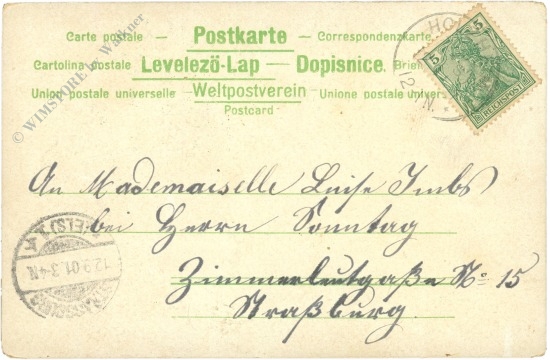 Carte postale — Postkarte — Correspondenzkarte.
Cartolina postale Levelezö-Lap — Dopisnice. Brief
Union postale universelle — Weltpostverein — Unione postale univers
Postcard
© WIMSTORE by Winkler
5 5
REICHSPOST
HO
12 N.
An Mademaiselle Luise Imbs
bei Herrn Sonntag
Zimmerleutgaße No 15
Straßburg.
STRASSBURG (ELS) 1
12.9.01. 3-4N.